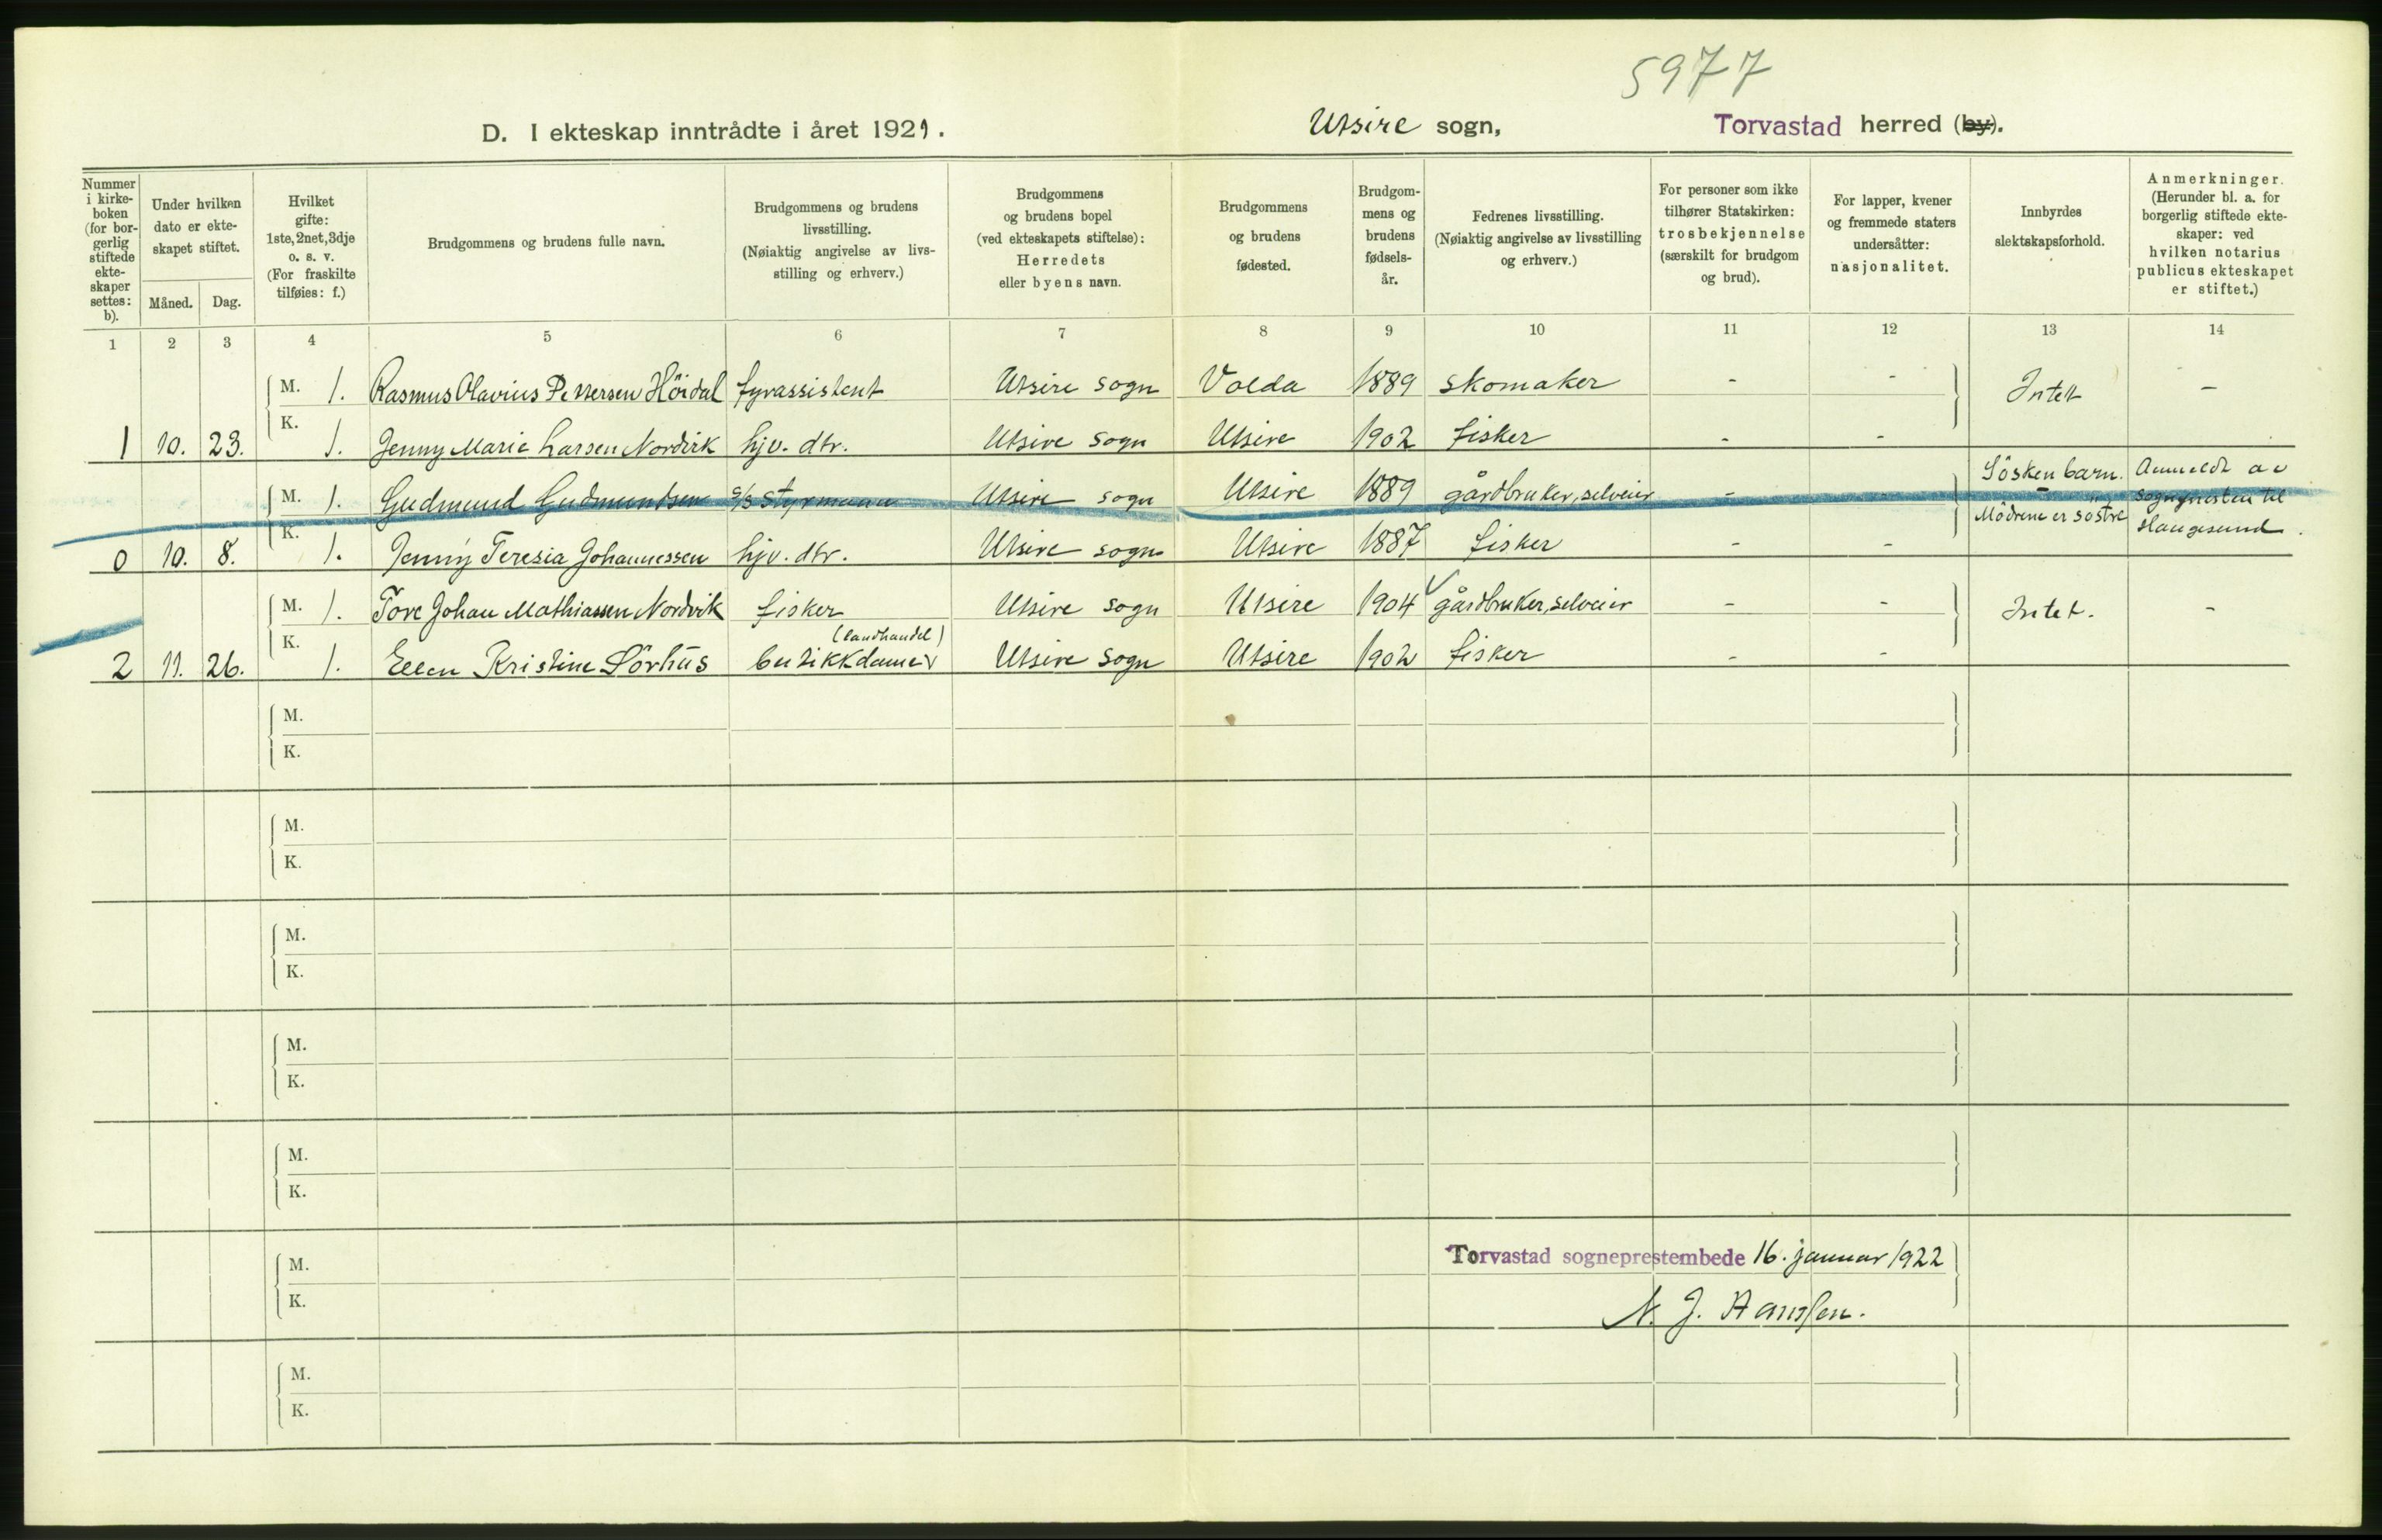 5977
D. I ekteskap inntrådte i året 1921.
Utsire sogn,
Torvastad herred (by).
Nummer i kirkeboken (for borgerlig stiftede ekteskaper settes: b).
Under hvilken dato er ekteskapet stiftet.
Måned. Dag.
Hvilket gifte: 1ste, 2net, 3dje o. s. v. (For fraskilte tilføies: f.)
Brudgommens og brudens fulle navn.
Brudgommens og brudens livsstilling. (Nøiaktig angivelse av livsstilling og erhverv.)
Brudgommens og brudens bopel (ved ekteskapets stiftelse): Herredets eller byens navn.
Brudgommens og brudens fødested.
Brudgommens og brudens fødselsår.
Fedrenes livsstilling. (Nøiaktig angivelse av livsstilling og erhverv.)
For personer som ikke tilhører Statskirken: trosbekjennelse (særskilt for brudgom og brud).
For lapper, kvener og fremmede staters undersåtter: nasjonalitet.
Innbyrdes slektskapsforhold.
Anmerkninger. (Herunder bl. a. for borgerlig stiftede ekteskaper: ved hvilken notarius publicus ekteskapet er stiftet.)
1 2 3 4 5 6 7 8 9 10 11 12 13 14
M. 1. Rasmus Olavius Pettersen Höidal fyrassistent Utsire sogn Volda 1889 skomaker - - Intet -
K.
1 10. 23. 1. Jenny Marie Larsen Nordvik hjv. dtr. Utsire sogn Utsire 1902 fisker - -
M. 1. Gudmund Gudmundsen s/s styrmann Utsire sogn Utsire 1889 gårdbruker, selveier - Söskenbarn. Anmeldt av
K. Mödrene er söstre sogneprsten til
0 10. 8. 1. Jenny Teresia Johannessen hjv. dtr. Utsire sogn Utsire 1887 fisker - - Haugesund.
M. 1. Tore Johan Mathiassen Nordvik fisker Utsire sogn Utsire 1904 gårdbruker, selveier - - Intet. -
K. (landhandel)
2 11. 26. 1. Ellen Kristine Sörhus butikkdame Utsire sogn Utsire 1902 fisker - -
M.
K.
M.
K.
M.
K.
M.
K.
M.
K.
M.
Torvastad sogneprestembede 16. januar 1922
K.
N. J. Hanssen.
M.
K.